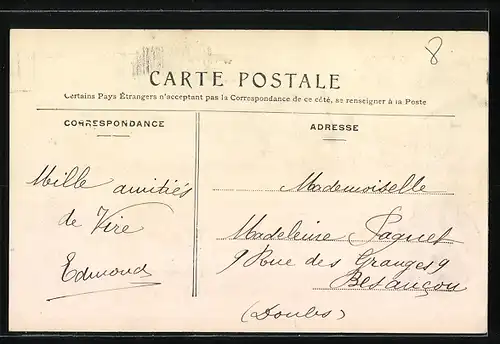 8
CARTE POSTALE
Certains Pays Étrangers n'acceptant pas la Correspondance de ce côté, se renseigner à la Poste
CORRESPONDANCE
ADRESSE
Mille amitiés
de Vire
Edmond
Mademoiselle
Madeleine Paguet
9 Rue des Granges 9
Besançon
(Doubs)